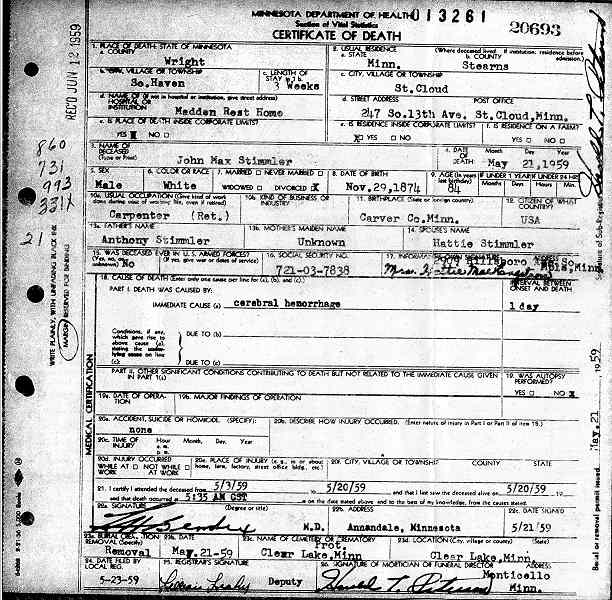 MINNESOTA DEPARTMENT OF HEALTH 013261
Section of Vital Statistics 20693
CERTIFICATE OF DEATH
REC'D JUN 12 1959
1. PLACE OF DEATH: STATE OF MINNESOTA
a. COUNTY
Wright
2. USUAL RESIDENCE (Where deceased lived. If institution: residence before admission)
a. STATE
Minn.
b. COUNTY
Stearns
b. CITY, VILLAGE OR TOWNSHIP
So.Haven
c. LENGTH OF STAY in 1b
3 Weeks
c. CITY, VILLAGE OR TOWNSHIP
St.Cloud
d. NAME OF (If not in hospital or institution, give street address)
HOSPITAL OR INSTITUTION
Madden Rest Home
d. STREET ADDRESS POST OFFICE
247 So.13th Ave. St.Cloud,Minn.
e. IS PLACE OF DEATH INSIDE CORPORATE LIMITS?
YES X NO
e. IS RESIDENCE INSIDE CORPORATE LIMITS?
YES X NO
f. IS RESIDENCE ON A FARM?
YES NO
3. NAME OF DECEASED
(Type or Print)
John Max Stimmler
4. DATE OF DEATH Month Day Year
May 21,1959
5. SEX
Male
6. COLOR OR RACE
White
7. MARRIED NEVER MARRIED
WIDOWED DIVORCED X
8. DATE OF BIRTH
Nov.29,1874
9. AGE (In years last birthday)
84
IF UNDER 1 YEAR IF UNDER 24 HRS
Months Days Hours Min.
10a. USUAL OCCUPATION (Give kind of work
Carpenter (Ret.)
10b. KIND OF BUSINESS OR INDUSTRY
11. BIRTHPLACE (State or foreign country)
Carver Co.Minn.
12. CITIZEN OF WHAT COUNTRY?
USA
13a. FATHER'S NAME
Anthony Stimmler
13b. MOTHER'S MAIDEN NAME
Unknown
14. SPOUSE'S NAME
Hattie Stimmler
15. WAS DECEASED EVER IN U. S. ARMED FORCES?
(Yes, no, or unknown) (If yes, give war or dates of service)
No
16. SOCIAL SECURITY NO.
721-03-7838
2909 Hillsboro Ave.So.
Mpls,Minn.
18. CAUSE OF DEATH (Enter only one cause per line for (a), (b), and (c).)
PART I. DEATH WAS CAUSED BY:
IMMEDIATE CAUSE (a) cerebral hemorrhage
INTERVAL BETWEEN ONSET AND DEATH
1 day
Conditions, if any, which gave rise to above cause (a), stating the underlying cause on line (c)
DUE TO (b)
DUE TO (c)
PART II. OTHER SIGNIFICANT CONDITIONS CONTRIBUTING TO DEATH BUT NOT RELATED TO THE IMMEDIATE CAUSE GIVEN IN PART I(a)
19. WAS AUTOPSY PERFORMED?
YES NO X
19a. DATE OF OPERATION
19b. MAJOR FINDINGS OF OPERATION
20a. ACCIDENT, SUICIDE OR HOMICIDE. (SPECIFY)
none
20b. DESCRIBE HOW INJURY OCCURRED. (Enter nature of injury in Part I or Part II of item 18.)
20c. TIME OF INJURY Hour a. m. p. m. Month, Day, Year
20d. INJURY OCCURRED
WHILE AT WORK NOT WHILE AT WORK
20e. PLACE OF INJURY (e. g., in or about home, farm, factory, street, office bldg., etc.)
20f. CITY, VILLAGE OR TOWNSHIP COUNTY STATE
21. I certify I attended the deceased from 5/3/59 to 5/20/59 and that I last saw the deceased alive on 5/20/59
and that death occurred at 5:35 AM CST on the date stated above and to the best of my knowledge, from the causes stated.
22a. SIGNATURE (Degree or title)
M.D.
22b. ADDRESS
Annandale, Minnesota
22c. DATE SIGNED
5/21/59
23a. BURIAL, CREMATION, REMOVAL (Specify)
Removal
23b. DATE
May.21-59
23c. NAME OF CEMETERY OR CREMATORY
Prot.
Clear Lake,Minn
23d. LOCATION (City, village or county) (State)
Clear Lake,Minn.
24. DATE FILED BY LOCAL REG.
5-23-59
25. REGISTRAR'S SIGNATURE
Deputy
26. SIGNATURE OF MORTICIAN OR FUNERAL DIRECTOR ADDRESS
Harold T. Peterson
Monticello
Minn.
860
731
993
331X
21
WRITE PLAINLY, WITH UNFADING BLACK INK
MARGIN RESERVED FOR BINDING
MEDICAL CERTIFICATION
May.21 1959